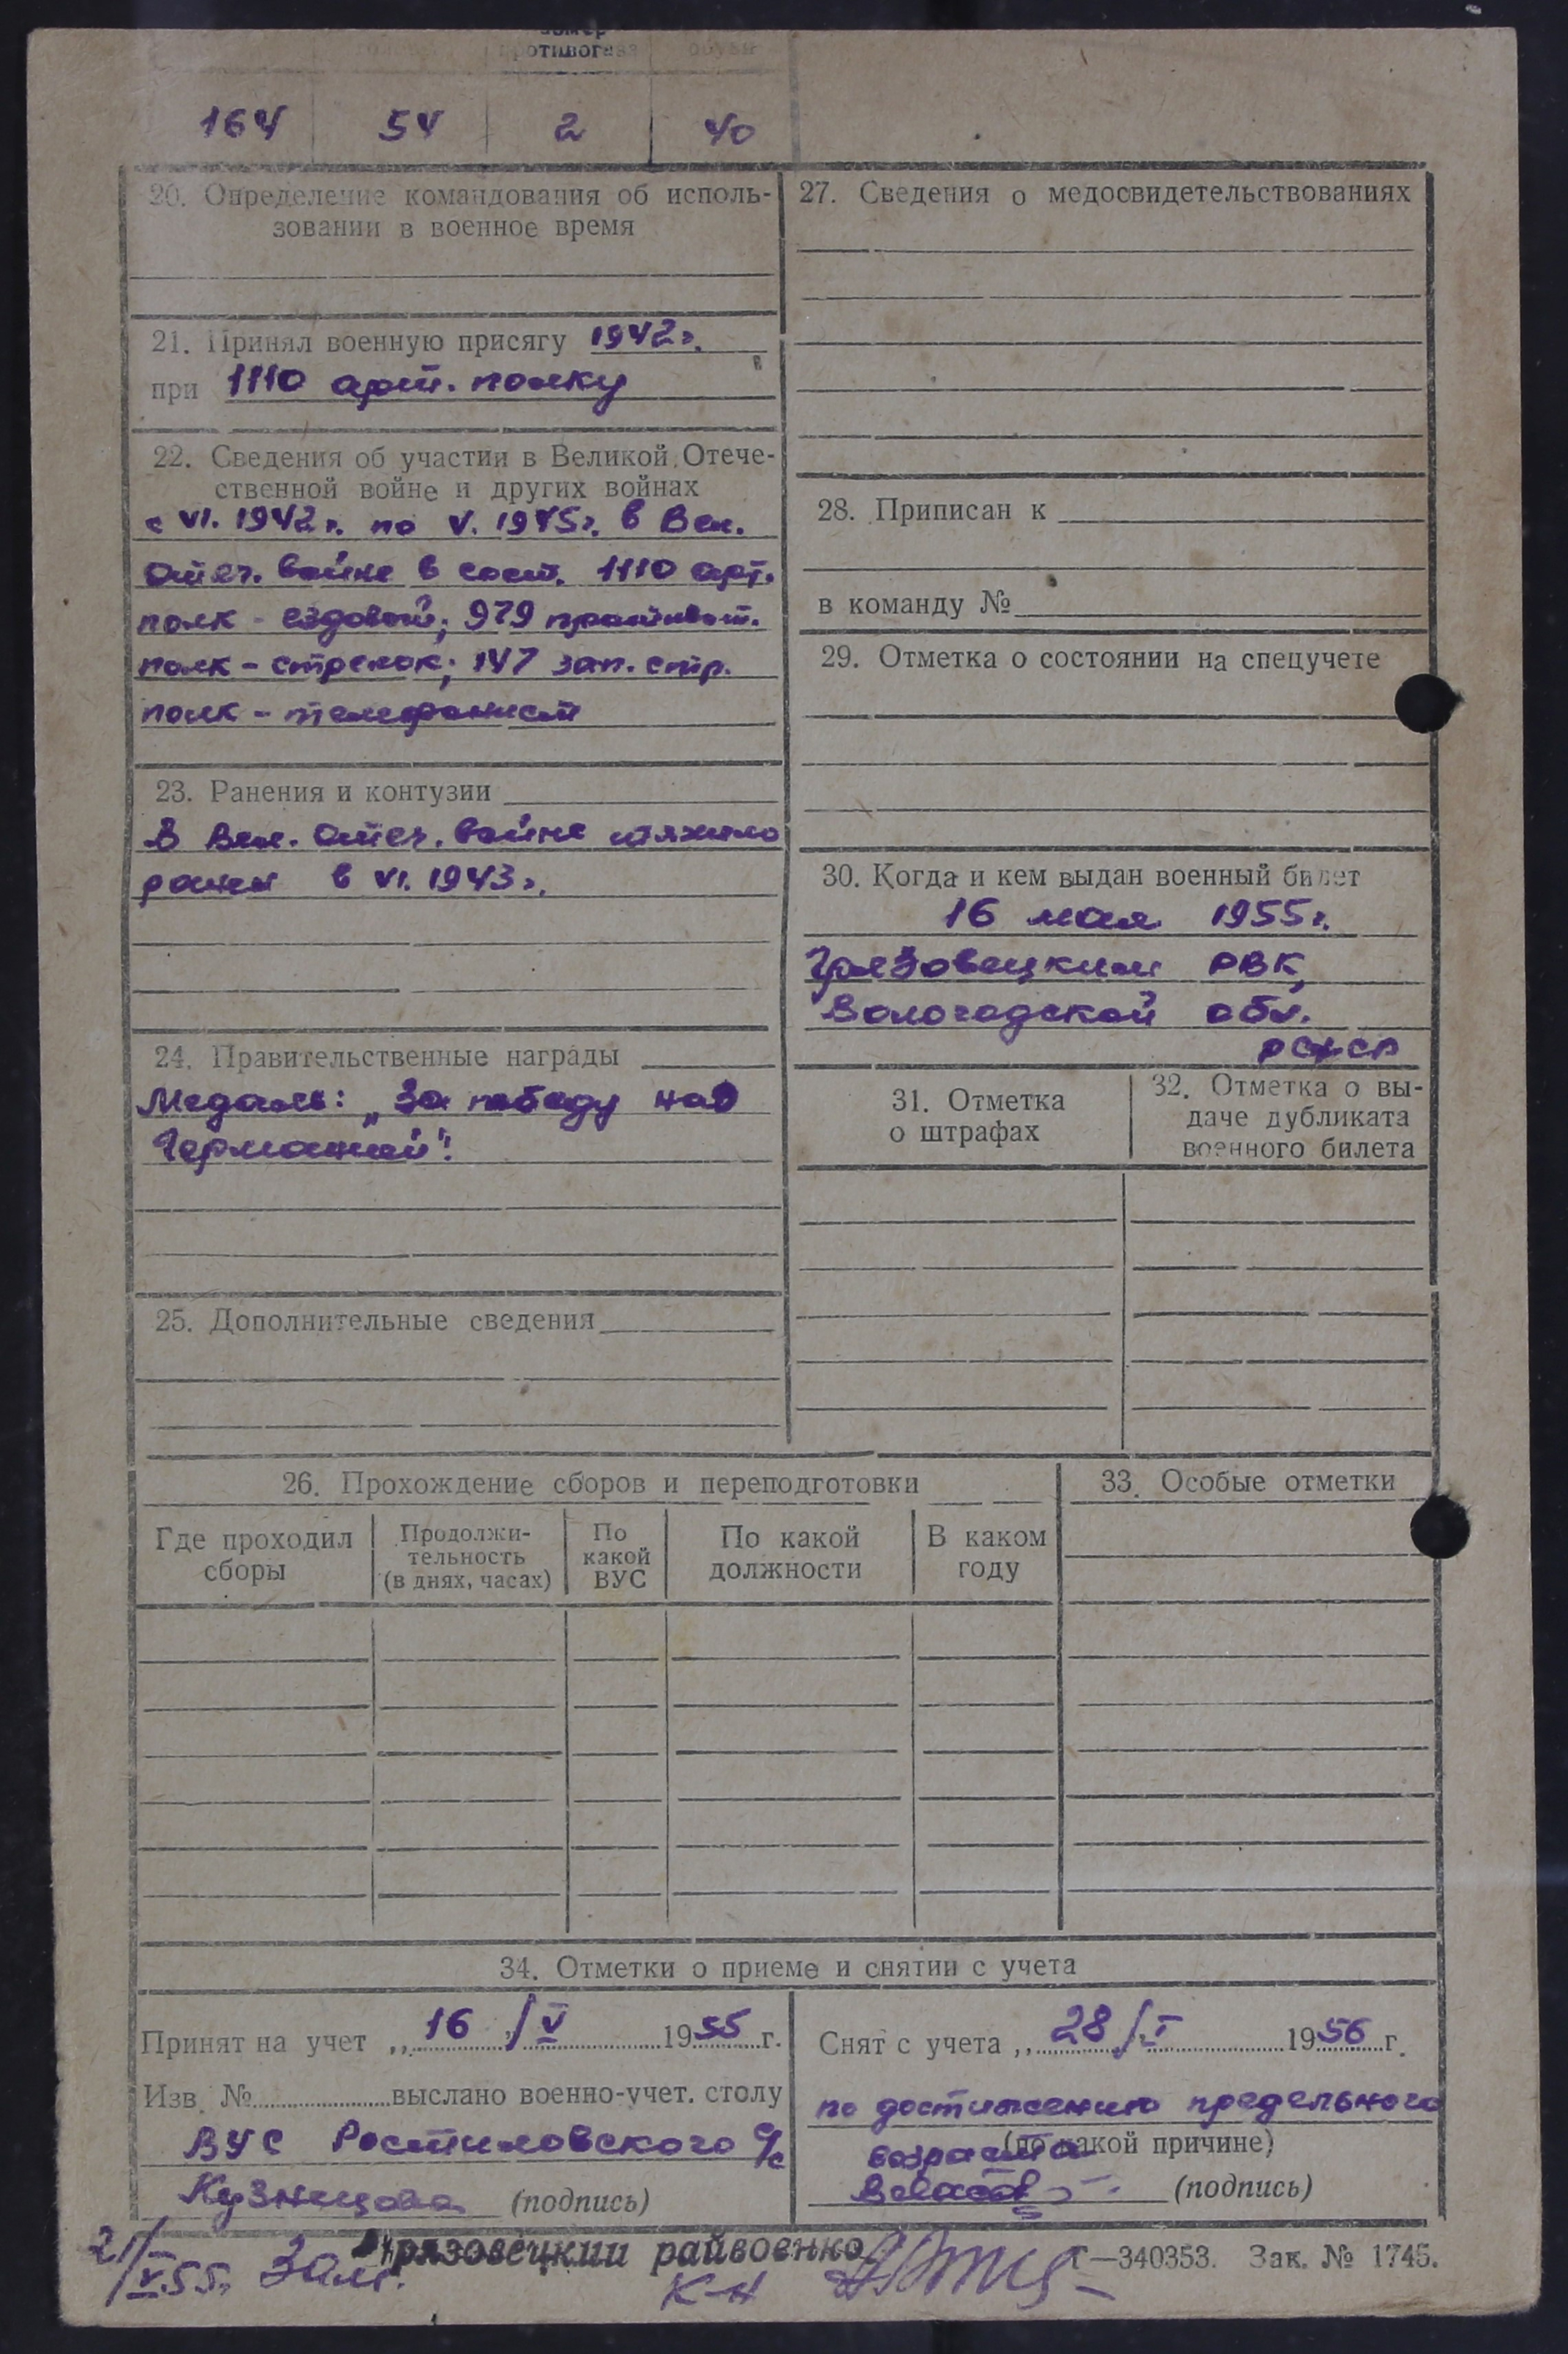 номер
противогаза обуви
164 54 2 40
20. Определение командования об исполь-
зовании в военное время
21. Принял военную присягу 1942г.
при 1110 арт. полку
22. Сведения об участии в Великой Отече-
ственной войне и других войнах
с VI. 1942г. по V. 1945г. в Вел.
Отеч. войне в сост. 1110 арт.
полк - ездовой; 979 противот.
полк - стрелок; 147 зап. стр.
полк - телефонист
23. Ранения и контузии
В Вел. Отеч. войне тяжело
ранен в VI. 1943г.
24. Правительственные награды
Медаль: „За победу над
Германией".
25. Дополнительные сведения
27. Сведения о медосвидетельствованиях
28. Приписан к
в команду №
29. Отметка о состоянии на спецучете
30. Когда и кем выдан военный билет
16 мая 1955г.
Грязовецким РВК,
Вологодской обл.
РСФСР
31. Отметка
о штрафах
32. Отметка о вы-
даче дубликата
военного билета
26. Прохождение сборов и переподготовки
Где проходил
сборы
Продолжи-
тельность
(в днях, часах)
По
какой
ВУС
По какой
должности
В каком
году
33. Особые отметки
34. Отметки о приеме и снятии с учета
Принят на учет „ 16 " / V 1955 г.
Изв. № выслано военно-учет. столу
ВУС Ростиловского с/с
Кузнецова (подпись)
Снят с учета „ 28 / I 1956 г.
по достижению предельного
возраста (по какой причине)
(подпись)
21/V.55г. Зам. Грязовецкий райвоенком
к-н
Г—340353. Зак. № 1745.